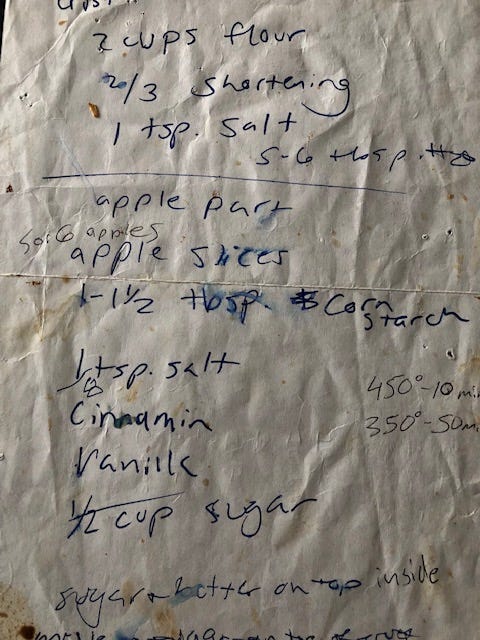 2 cups flour
2/3 shortening
1 tsp. salt
5-6 tbsp. H2O
apple part
5 or 6 apples
apple slices
1-1 1/2 tbsp. Corn
starch
1/8 tsp. salt
450°-10 min
Cinnamin
350°-50m
Vanilla
1/2 cup sugar
sugar + butter on top inside